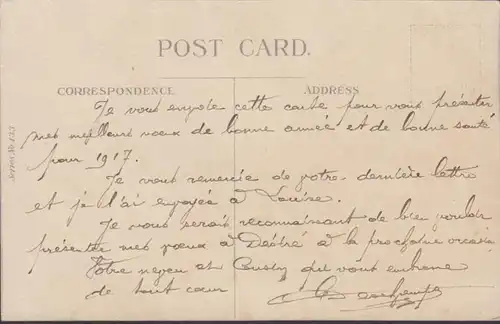 POST CARD.
CORRESPONDENCE
ADDRESS
Je vous envoie cette carte pour vous présenter
mes meilleurs vœux de bonne année et de bonne santé
pour 1917.
Je vous remercie de votre dernière lettre
et je l'ai envoyée à Louise.
Je vous serais reconnaissant de bien vouloir
présenter mes vœux à Désiré à la prochaine occasion
Votre neveu et Cousin qui vous embrasse
de tout cœur